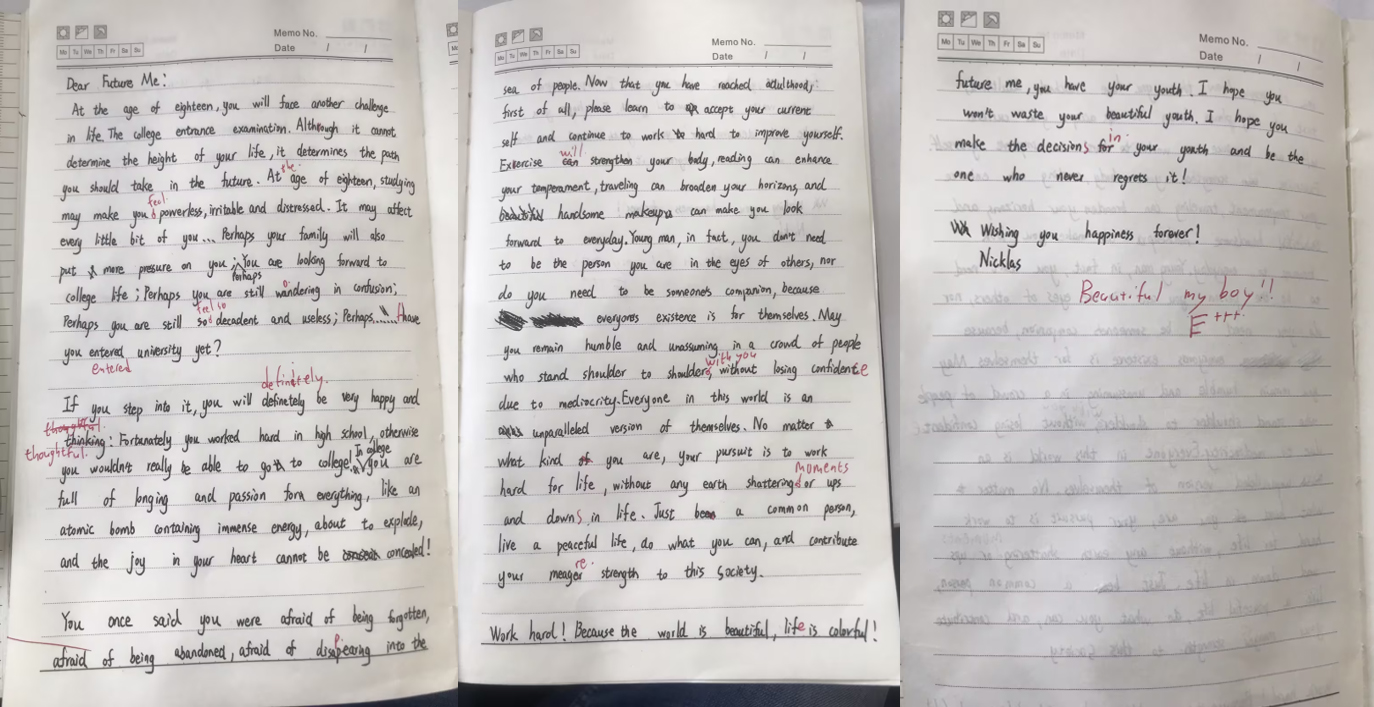 Memo No.
Mo Tu We Th Fr Sa Su
Date / /
Dear Future Me:
At the age of eighteen, you will face another challenge
in life. The college entrance examination. Although it cannot
determine the height of your life, it determines the path
the
you should take in the future. At age of eighteen, studying
feel
may make you powerless, irritable and distressed. It may affect
every little bit of you... Perhaps your family will also
put more pressure on you; You are looking forward to
Perhaps
college life; Perhaps you are still wandering in confusion;
feel so
Perhaps you are still so decadent and useless; Perhaps...... have
you entered university yet?
entered
definitely.
If you step into it, you will definetely be very happy and
thoughtful
thinking: Fortunately you worked hard in high school, otherwise
thoughtful.
In college
you wouldn't really be able to go to college! you are
full of longing and passion for everything, like an
atomic bomb containing immense energy, about to explode,
and the joy in your heart cannot be concealed!
You once said you were afraid of being forgotten,
p
afraid of being abandoned, afraid of disapearing into the
Memo No.
Mo Tu We Th Fr Sa Su
Date / /
sea of people. Now that you have reached adulthood:
first of all, please learn to accept your current
self and continue to work hard to improve yourself.
will
Exercise can strengthen your body, reading can enhance
your temperament, traveling can broaden your horizons, and
beautiful handsome makeup can make you look
forward to everyday. Young man, in fact, you don't need
to be the person you are in the eyes of others, nor
do you need to be someone's companion, because
everyones existence is for themselves. May
you remain humble and unassuming in a crowd of people
with you
who stand shoulder to shoulder, without losing confidence
due to mediocrity. Everyone in this world is an
unparalleled version of themselves. No matter
what kind of you are, your pursuit is to work
moments
hard for life, without any earth shattering or ups
and downs in life. Just a common person,
live a peaceful life, do what you can, and contribute
re
your meager strength to this society.
Work hard! Because the world is beautiful, life is colorful!
Memo No.
Mo Tu We Th Fr Sa Su
Date / /
future me, you have your youth. I hope you
won't waste your beautiful youth. I hope you
in
make the decisions for your youth and be the
one who never regrets it!
Wishing you happiness forever!
Nicklas
Beautiful my boy!!
E+++.